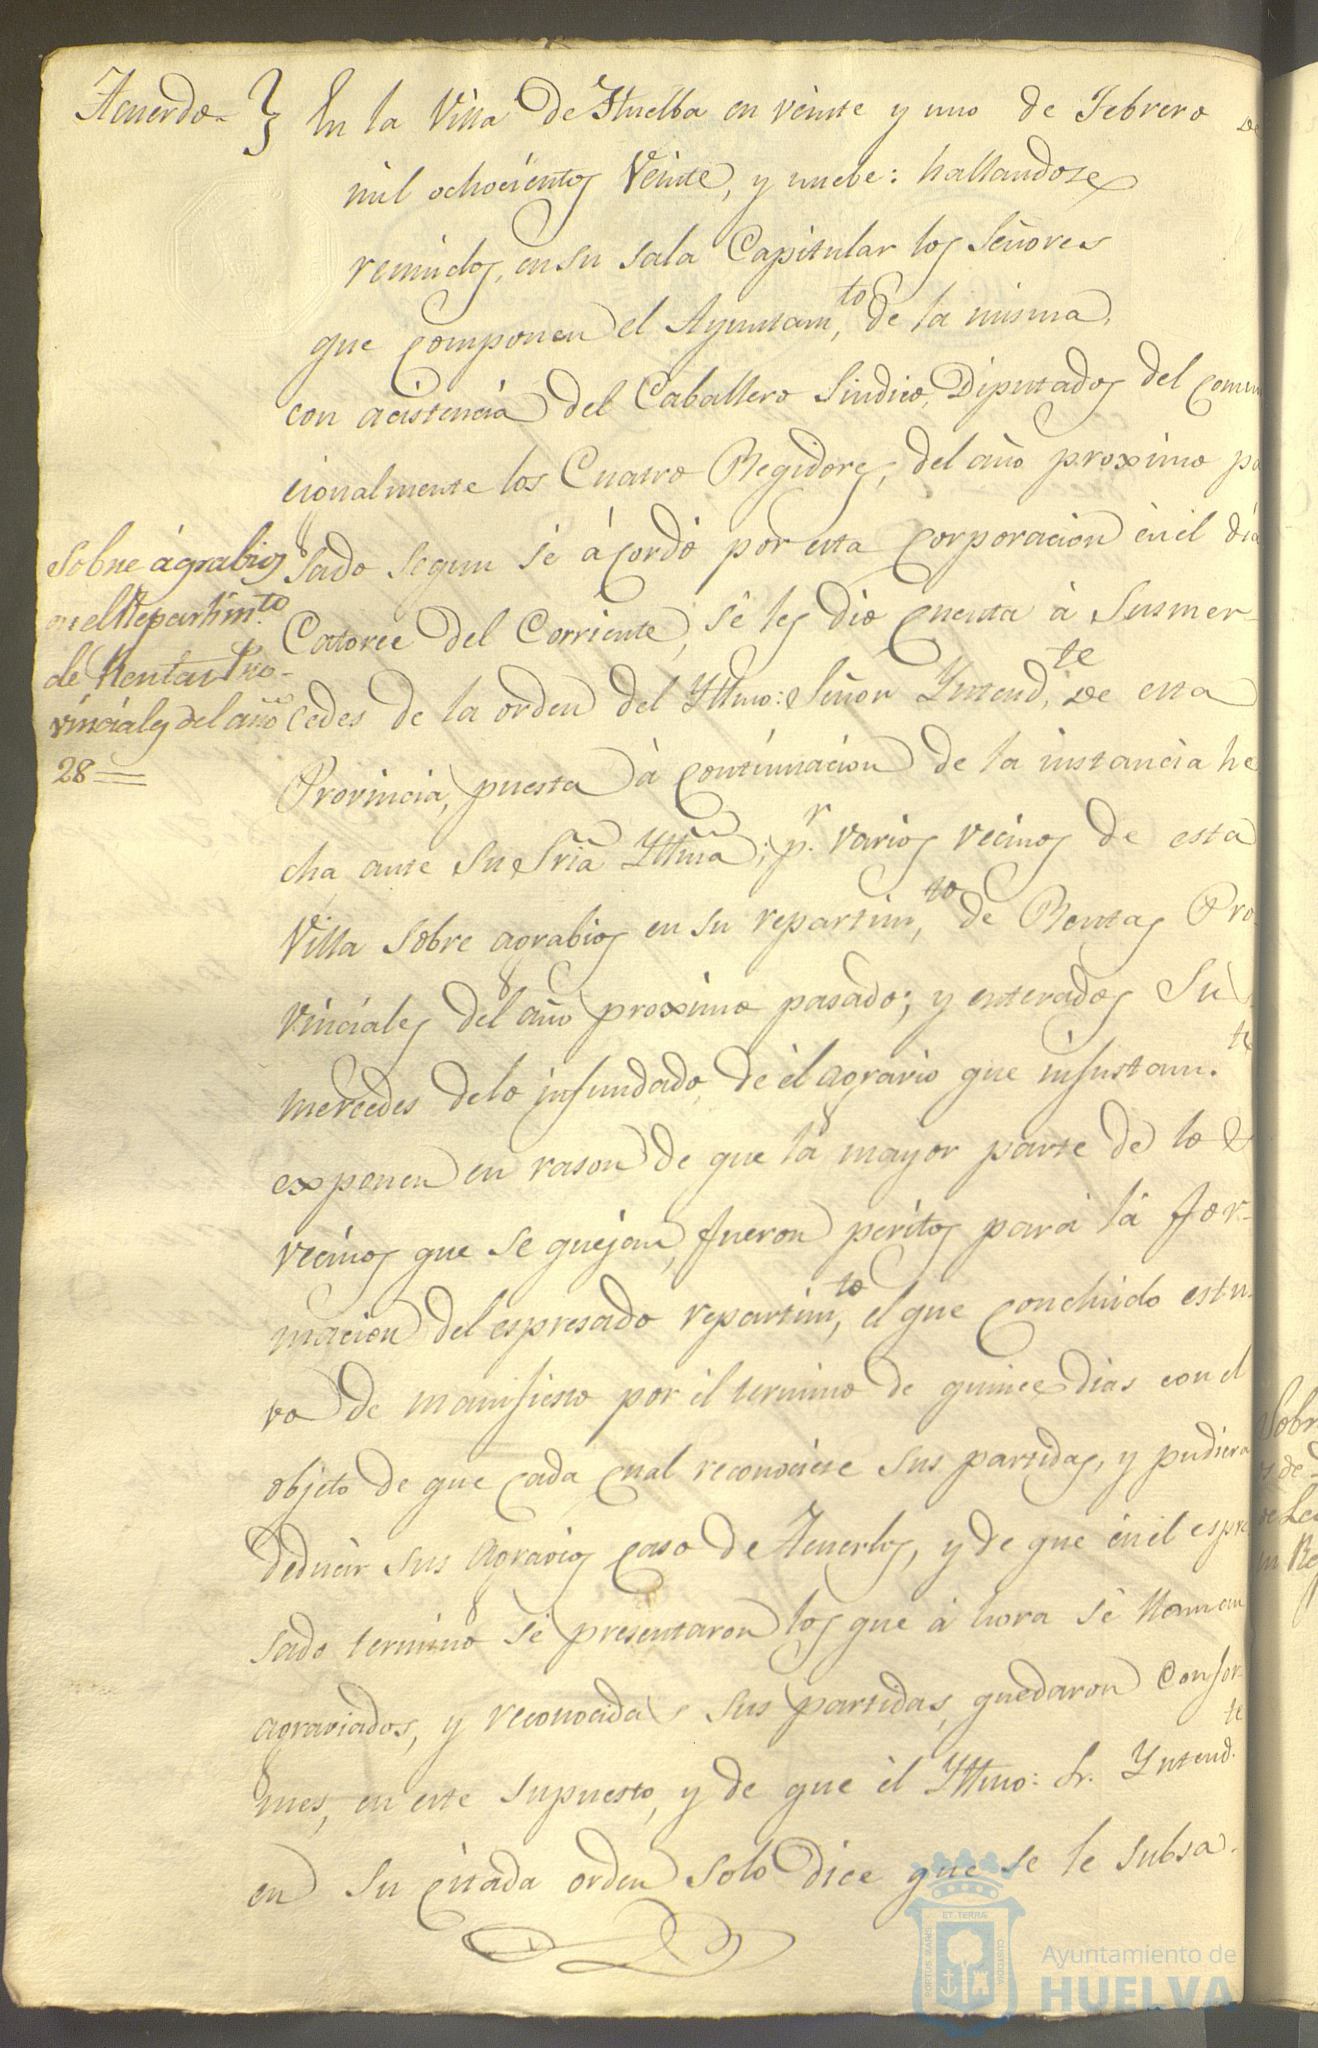 Acuerdo } En la Villa de Huelba en veinte y uno de Febrero de
mil ochocientos veinte, y nuebe: hallandose
reunidos, en su sala Capitular los Señores
que componen el Ayuntam,to de la misma,
con acistencia del Caballero Sindico, Diputados del comun
cionalmente los Cuatro Regidores, del año proximo pa
sado segun sé ácordó por esta corporacion én él dia
Catorce del Corriente, sé les dio cuenta á Susmer-
cedes de la orden del Yllmo: Señor Yntend,te de esta
Provincia, puesta á continuacion de la instancia he
cha ante Su Sria Yllma; p.r varios vecinos de esta
Villa sobre agrabios en su repartim,to de Rentas Pro-
vinciales del año proximo pasado; y enterados Su
mercedes delo infundado, dé él agravio que injustam.te
exponen en rason de que la mayor parte de lo s
vecinos que se quejan, fueron peritos para la for-
macion del espresado repartim,to el que concluido estu-
vo de manifiesto por él termino de quince dias con el
objeto de que cada cual reconociese sus partidas, y pudiera
deducir sus agravios caso de tenerlos, y de que én él espre
sado termino sé presentaron los que á hora sé llaman
agraviados, y reconocida s sus partidas, quedaron confor
mes, en este supuesto, y de que él Yllmo: Sr. Yntend.te
en su citada orden solo dice que se le subsa-
Sobre ágrabios
en el Repartim.to
de Rentas Pro-
vinciales del año
28=
Sobr
y de
de Le
un Re
PORTUS MARIS ET TERRÆ CUSTODIA
Ayuntamiento de
HUELVA